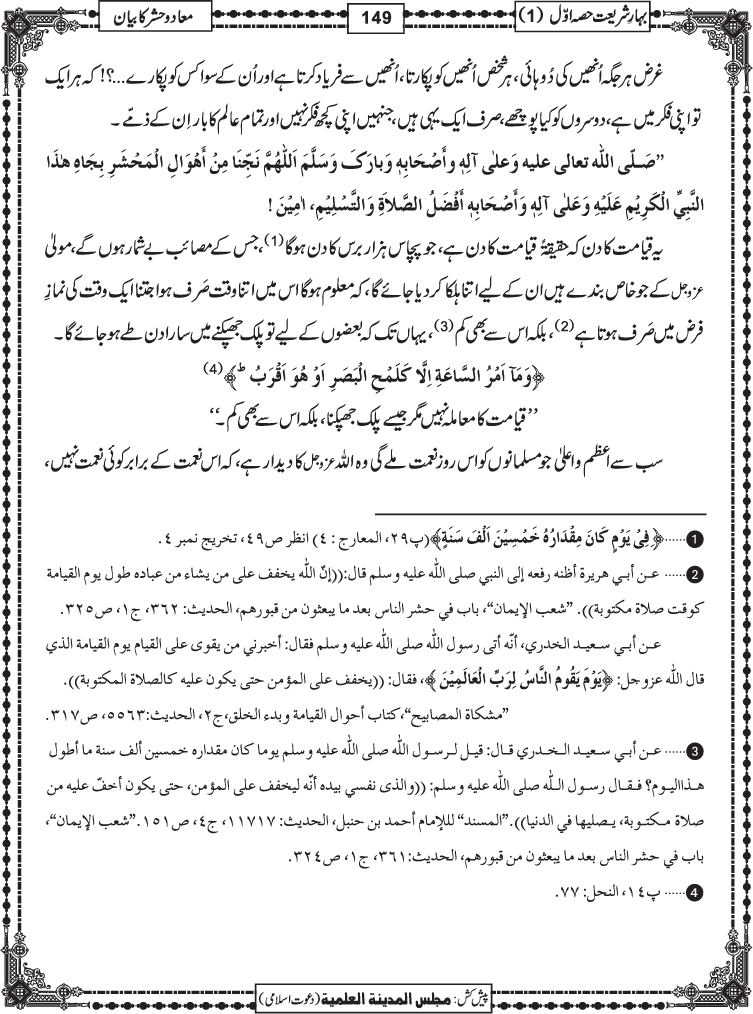 بہارِ شریعت حصہ اوّل (1)
149
معاد و حشر کا بیان
غرض ہر جگہ اُنھیں کی دُوہائی، ہر شخص اُنھیں کو پکارتا، اُنھیں سے فریاد کرتا ہے اور اُن کے سوا کس کو پکارے...؟! کہ ہر ایک
تو اپنی فکر میں ہے، دوسروں کو کیا پوچھے، صرف ایک یہی ہیں، جنہیں اپنی کچھ فکر نہیں اور تمام عالم کا بار اِن کے ذمّے ۔
”صَلَّی اللہ تعالی علیہ وَعلٰی آلِہٖ وأَصْحَابِہٖ وبارَکَ وَسَلَّمَ اَللّٰھُمَّ نَجِّنَا مِنْ أَھْوَالِ الْمَحْشَرِ بِجَاہِ ھٰذَا
النَّبِيِّ الْکَرِیْمِ عَلَیْہِ وَعَلٰی آلِہٖ وَأَصْحَابِہٖ أَفْضَلُ الصَّلَاۃِ وَالتَّسْلِیْمِ، اٰمِیْنَ !
یہ قیامت کا دن کہ حقیقۃً قیامت کا دن ہے، جو پچاس ہزار برس کا دن ہوگا (1)، جس کے مصائب بے شمار ہوں گے، مولیٰ
عزوجل کے جو خاص بندے ہیں ان کے لیے اتنا ہلکا کر دیا جائے گا، کہ معلوم ہوگا اس میں اتنا وقت صَرف ہوا جتنا ایک وقت کی نمازِ
فرض میں صَرف ہوتا ہے (2)، بلکہ اس سے بھی کم (3)، یہاں تک کہ بعضوں کے لیے تو پلک جھپکنے میں سارا دن طے ہو جائے گا۔
﴿وَمَآ اَمْرُ السَّاعَۃِ اِلَّا کَلَمْحِ الْبَصَرِ اَوْ ھُوَ اَقْرَبُ ؕ﴾ (4)
’’قیامت کا معاملہ نہیں مگر جیسے پلک جھپکنا، بلکہ اس سے بھی کم۔‘‘
سب سے اعظم و اعلیٰ جو مسلمانوں کو اس روز نعمت ملے گی وہ اللہ عزوجل کا دیدار ہے، کہ اس نعمت کے برابر کوئی نعمت نہیں،
1 ...... ﴿فِیْ یَوْمٍ کَانَ مِقْدَارُہٗ خَمْسِیْنَ اَلْفَ سَنَۃٍ﴾ (پ۲۹، المعارج : ٤) انظر ص٤٩، تخریج نمبر ٤.
2 ...... عن أبي هريرة أظنه رفعه إلى النبي صلى الله عليه وسلم قال:((إنّ الله يخفف على من يشاء من عباده طول يوم القيامة
كوقت صلاة مكتوبة)). ”شعب الإيمان“، باب في حشر الناس بعد ما يبعثون من قبورهم، الحديث: ٣٦٢، ج١، ص٣٢٥.
عن أبي سعيد الخدري، أنّه أتى رسول الله صلى الله عليه وسلم فقال: أخبرني من يقوى على القيام يوم القيامة الذي
قال الله عزوجل: ﴿یَوْمَ یَقُوْمُ النَّاسُ لِرَبِّ الْعَالَمِیْنَ﴾، فقال: ((يخفف على المؤمن حتى يكون عليه كالصلاة المكتوبة)).
”مشكاة المصابيح“، كتاب أحوال القيامة وبدء الخلق، ج٢، الحديث:٥٥٦٣، ص٣١٧.
3 ...... عن أبي سعيد الخدري قال: قيل لرسول الله صلى الله عليه وسلم يوما كان مقداره خمسين ألف سنة ما أطول
هذا اليوم؟ فقال رسول الله صلى الله عليه وسلم: ((والذى نفسي بيده أنّه ليخفف على المؤمن، حتى يكون أخفّ عليه من
صلاة مكتوبة، يصليها في الدنيا)).”المسند“ للإمام أحمد بن حنبل، الحديث: ١١٧١٧، ج٤، ص١٥١.”شعب الإيمان“،
باب في حشر الناس بعد ما يبعثون من قبورهم، الحديث:٣٦١، ج١، ص٣٢٤.
4 ...... پ١٤، النحل: ٧٧.
پیش کش: مجلس المدینۃ العلمیۃ (دعوتِ اسلامی)